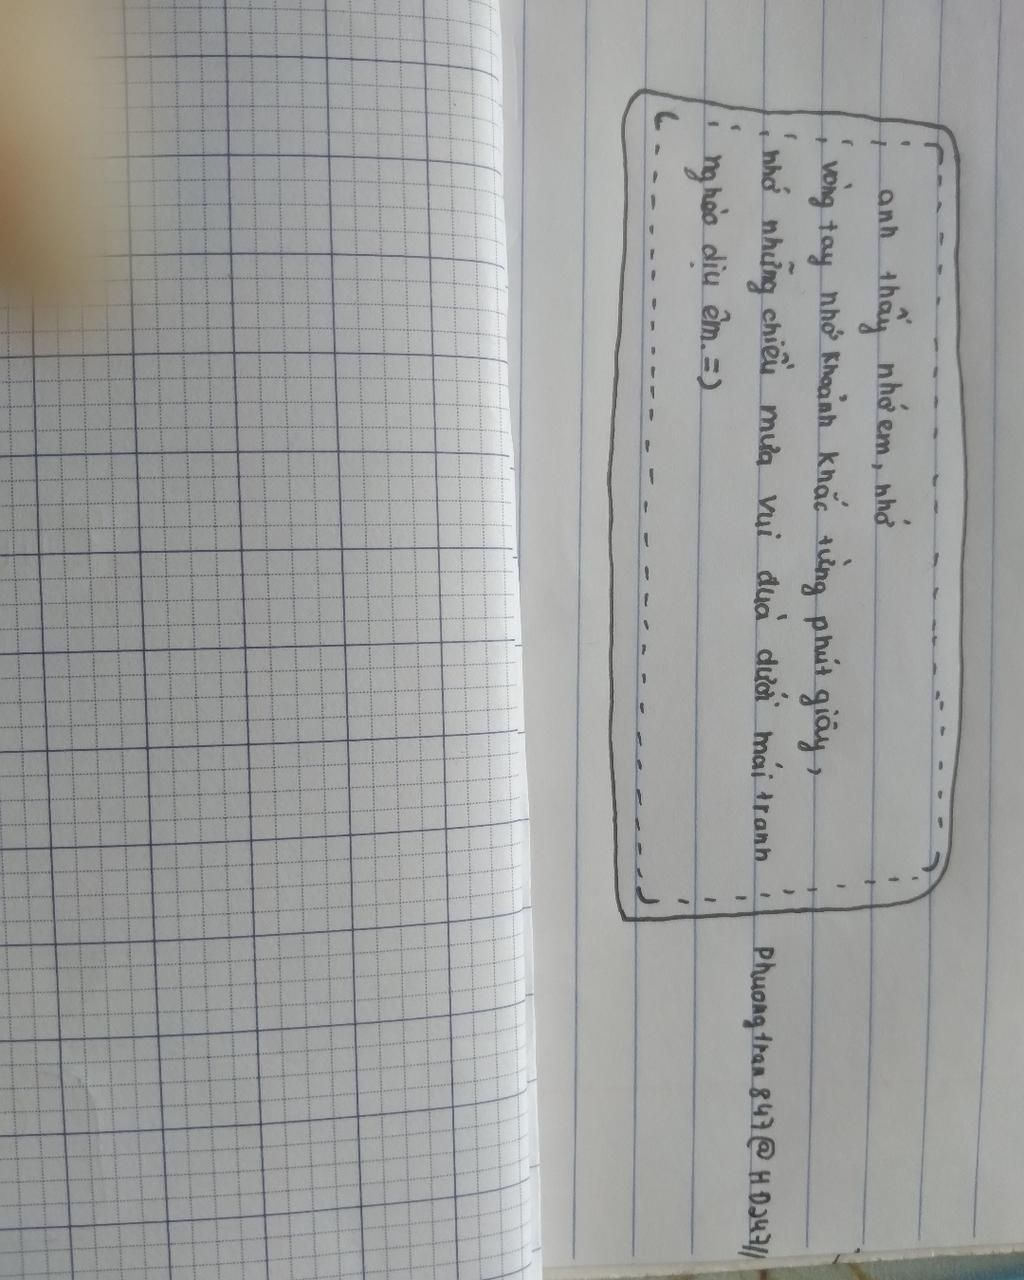 anh thấy nhớ em, nhớ
vòng tay nhớ khoảnh khắc từng phút giây,
nhớ những chiều mưa vui đùa dưới mái tranh
nghèo dịu êm. =)
Phuongtran847@HDJ247//